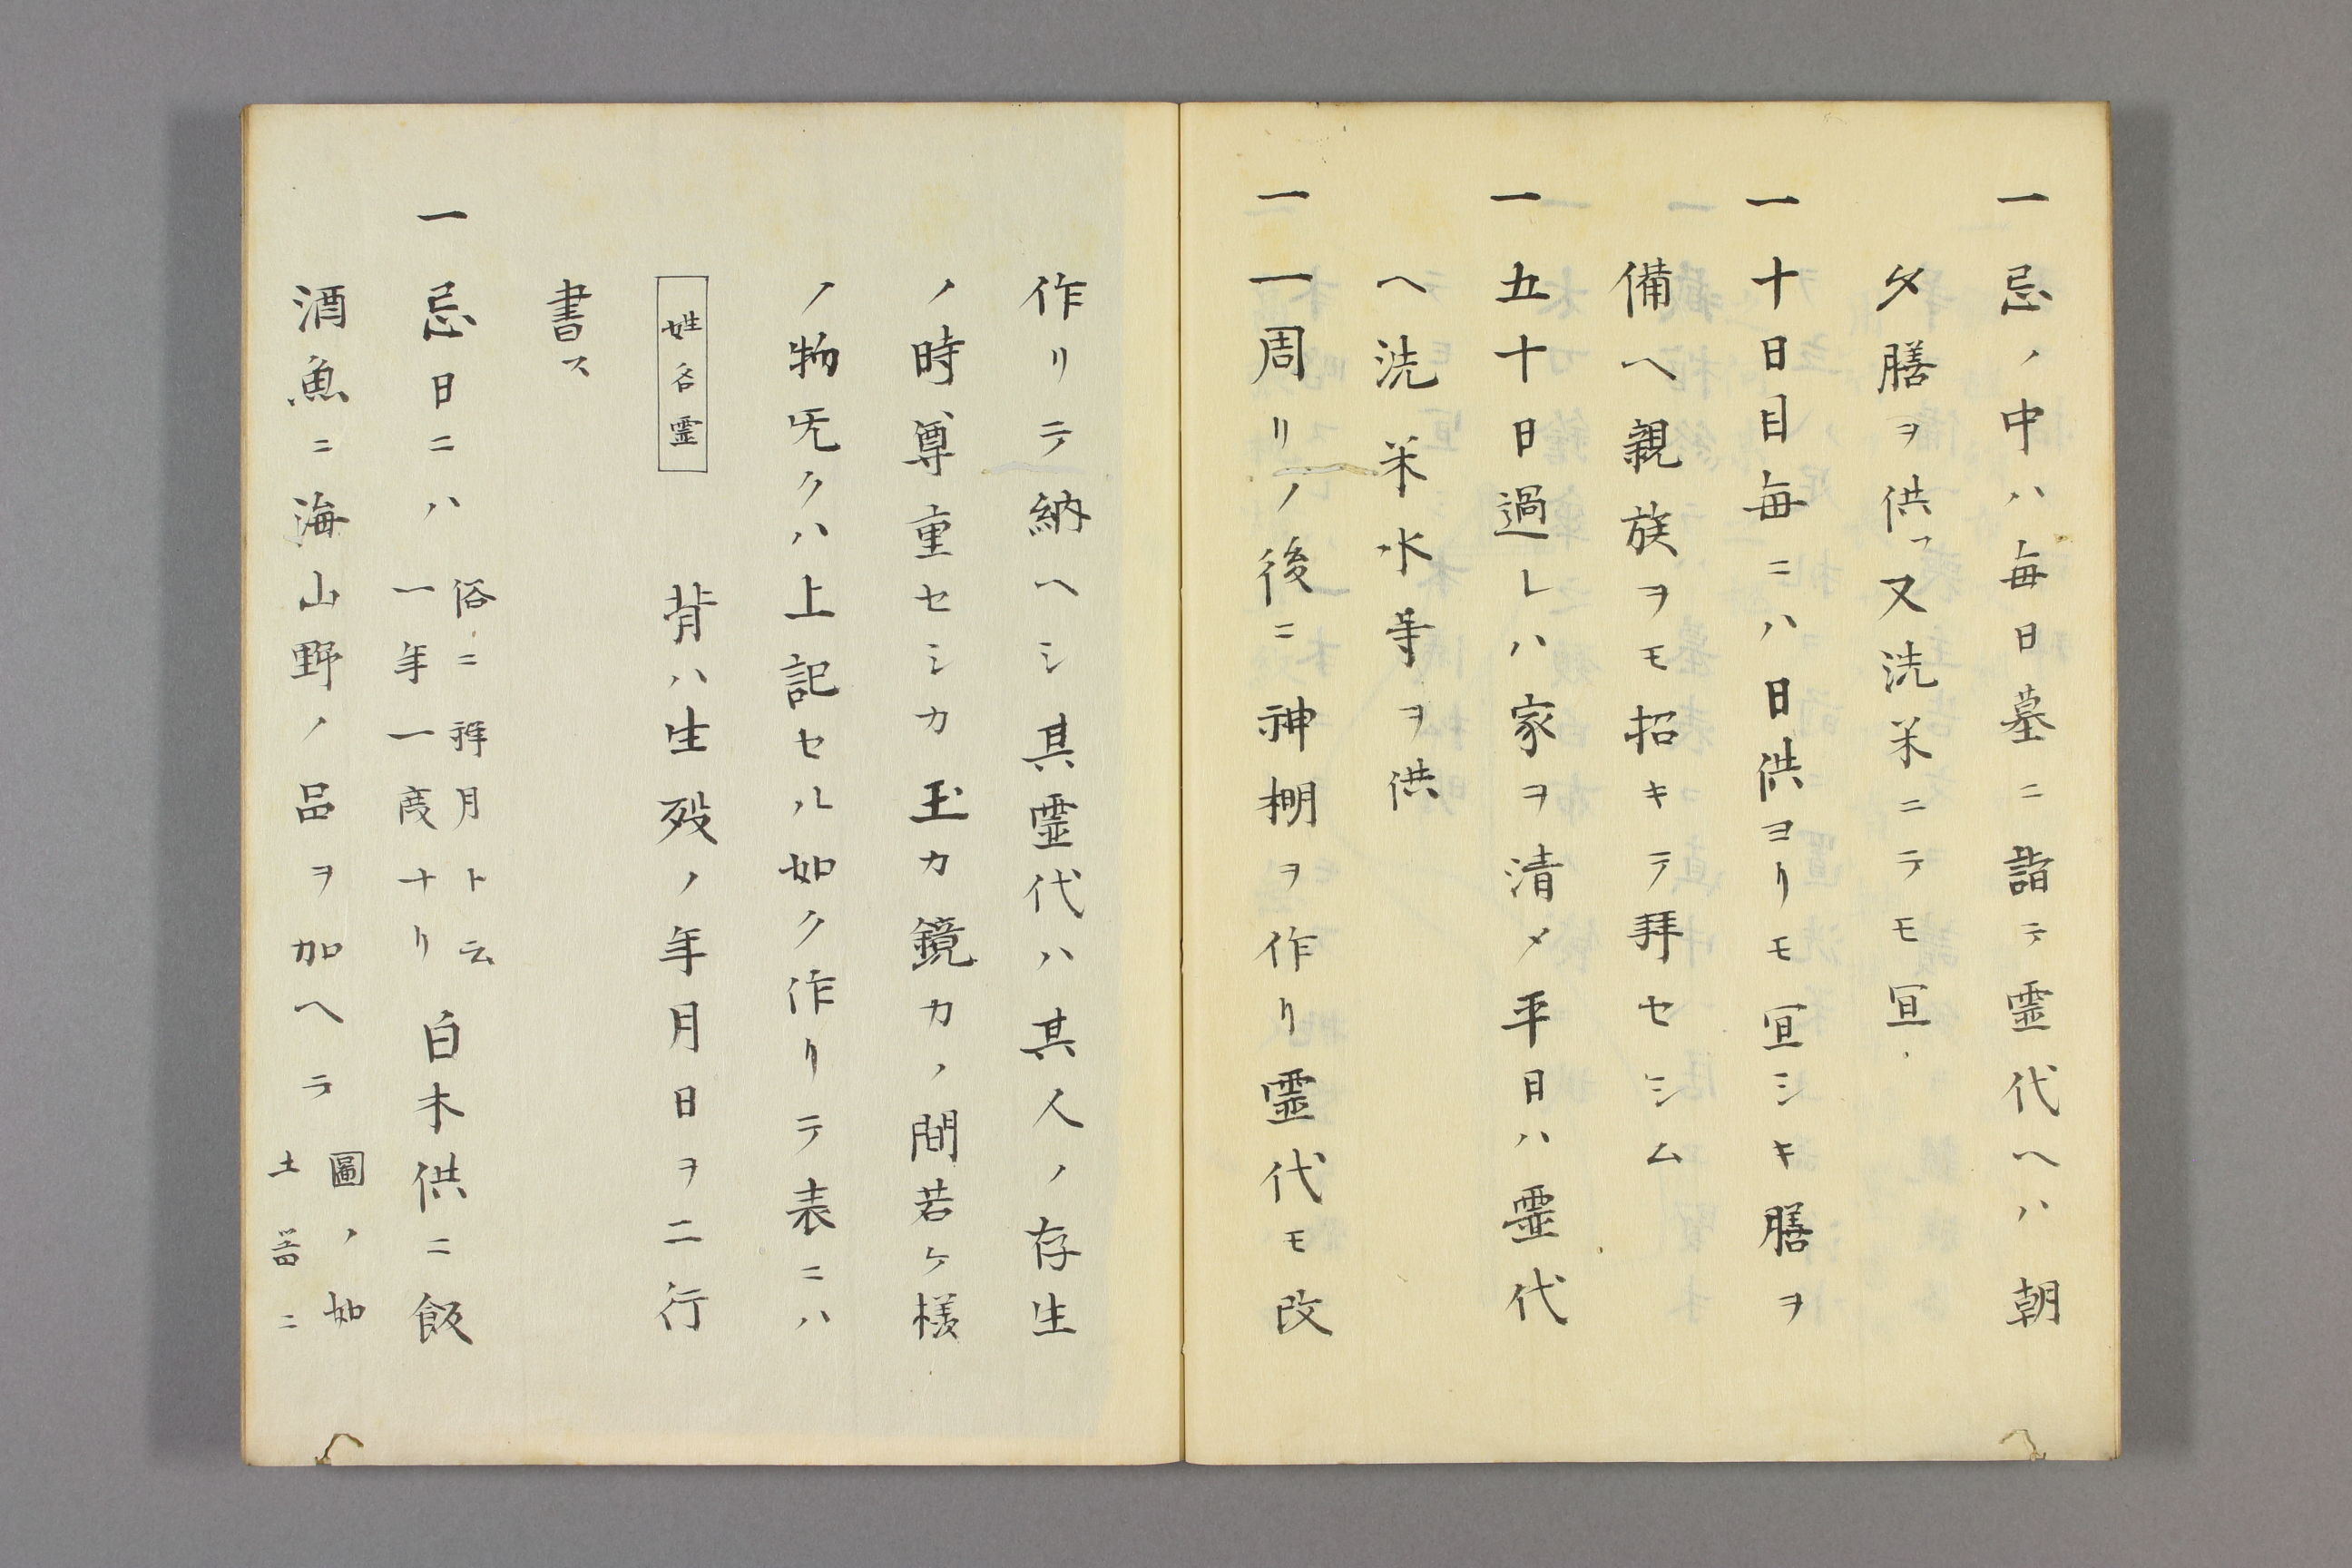 一忌ノ中ハ毎日墓ニ詣テ霊代ヘハ朝
夕膳ヲ供フ又洗米ニテモ宜
一十日目毎ニハ日供ヨリモ宜シキ膳ヲ
備ヘ親族ヲモ招キテ拝セシム
一五十日過レハ家ヲ清メ平日ハ霊代
ヘ洗米水等ヲ供
一一周リノ後ニ神棚ヲ作リ霊代モ改
作リテ納ヘシ其霊代ハ其人ノ存生
ノ時尊重セシカ玉カ鏡カノ間若ケ様
ノ物旡クハ上記セル如ク作リテ表ニハ
姓名霊
背ハ生歿ノ年月日ヲ二行
書ス
一忌日ニハ
俗ニ祥月ト云
一年一度ナリ
白木供ニ飯
酒魚ニ海山野ノ品ヲ加ヘテ
圖ノ如
土器ニ